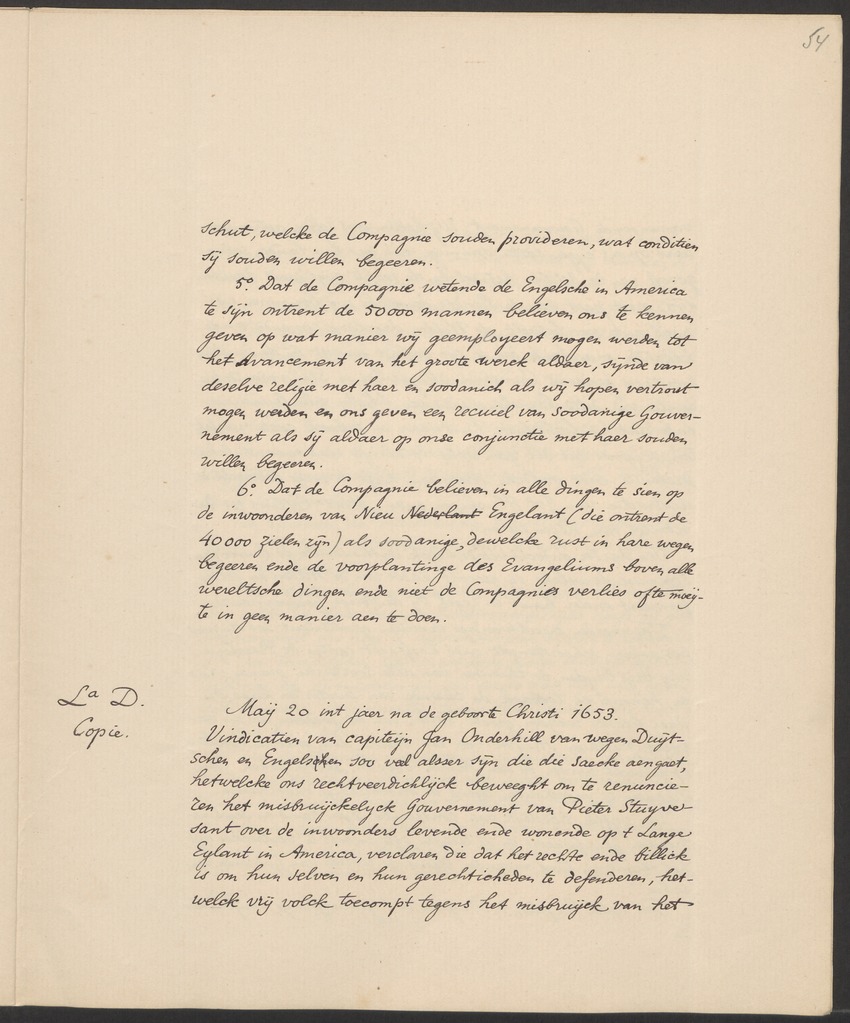 54
schut, welcke de Compagnie souden provideren, wat conditien
sij souden willen begeeren.
5.o Dat de Compagnie wetende de Engelsche in America
te sijn ontrent de 50000 mannen believen ons te kennen
geven op wat manier wij geemployeert mogen werden tot
het avancement van het groote werck aldaer, sijnde van
deselve religie met haer en soodanich als wij hopen vertrout
mogen werden en ons geven een recuiel van soodanige Gouver-
nement als sij aldaer op onse conjunctie met haer souden
willen begeeren.
6.o Dat de Compagnie believen in alle dingen te sien op
de inwoonderen van Nieu Nederlant Engelant (die ontrent de
40000 zielen zijn) als soodanige, dewelcke rust in hare wegen
begeeren ende de voorplantinge des Evangeliums boven alle
wereltsche dingen ende niet de Compagnies verlies ofte moeij-
te in geen manier aen te doen.
La D.
Copie.
Maij 20 int jaer na de geboorte Christi 1653.
Vindicatien van capiteijn Jan Onderhill van wegen Duijt-
schen en Engelschen soo veel alsser sijn die die saecke aengaet,
hetwelcke ons rechtveerdichlijck beweeght om te renuncie-
ren het misbruijckelyck Gouvernement van Pieter Stuyve
sant over de inwoonders levende ende wonende op t Lange
Eylant in America, verclaren die dat het rechte ende billick
is om hun selven en hun gerechticheden te defenderen, het-
welck vrij volck toecompt tegens het misbruijck van het